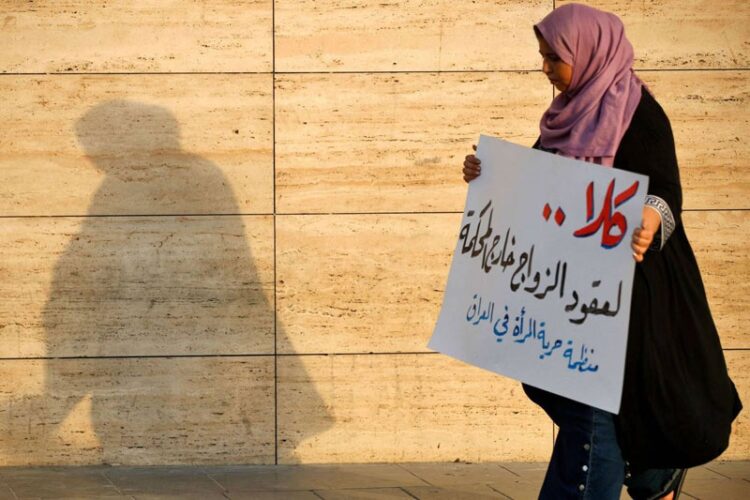 كلا ..
لعقود الزواج خارج المحكمة
منظمة حرية المرأة في العراق